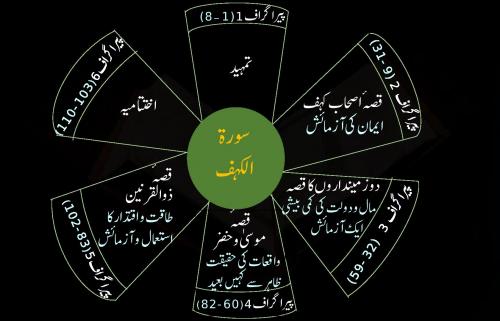 سورۃ
الکہف
پیراگراف 1 (1-8)
تمہید
پیراگراف 2 (9-31)
قصہ اصحاب کہف
ایمان کی آزمائش
پیراگراف 3 (32-59)
دو زمینداروں کا قصہ
مال و دولت کی کمی بیشی
ایک آزمائش
قصہ
موسیٰ و خضر
واقعات کی حقیقت
ظاہر سے کہیں بعید
پیراگراف 4 (60-82)
قصہ
ذوالقرنین
طاقت و اقتدار کا
استعمال و آزمائش
پیراگراف 5 (83-102)
پیراگراف 6 (103-110)
اختتامیہ